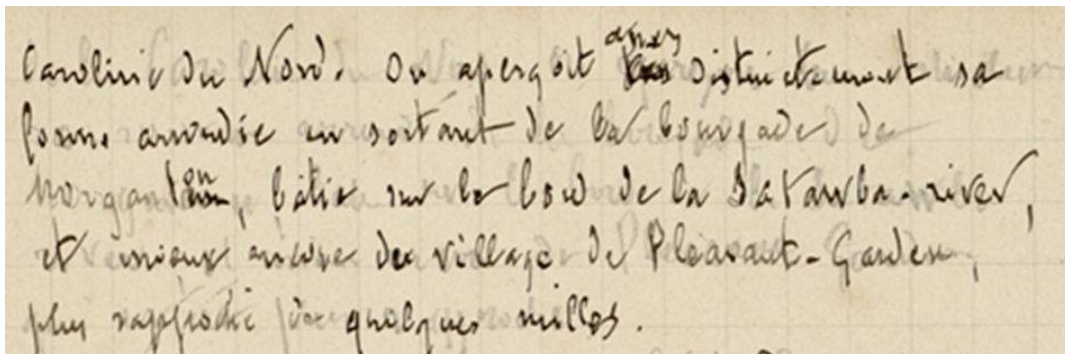 Caroline du Nord. On aperçoit assez distinctement sa
forme arrondie en sortant de la bourgade de
Morganton, bâtie sur le bord de la Satawba-river,
et mieux encore du village de Pleasant-Garden,
plus rapproché de quelques milles.